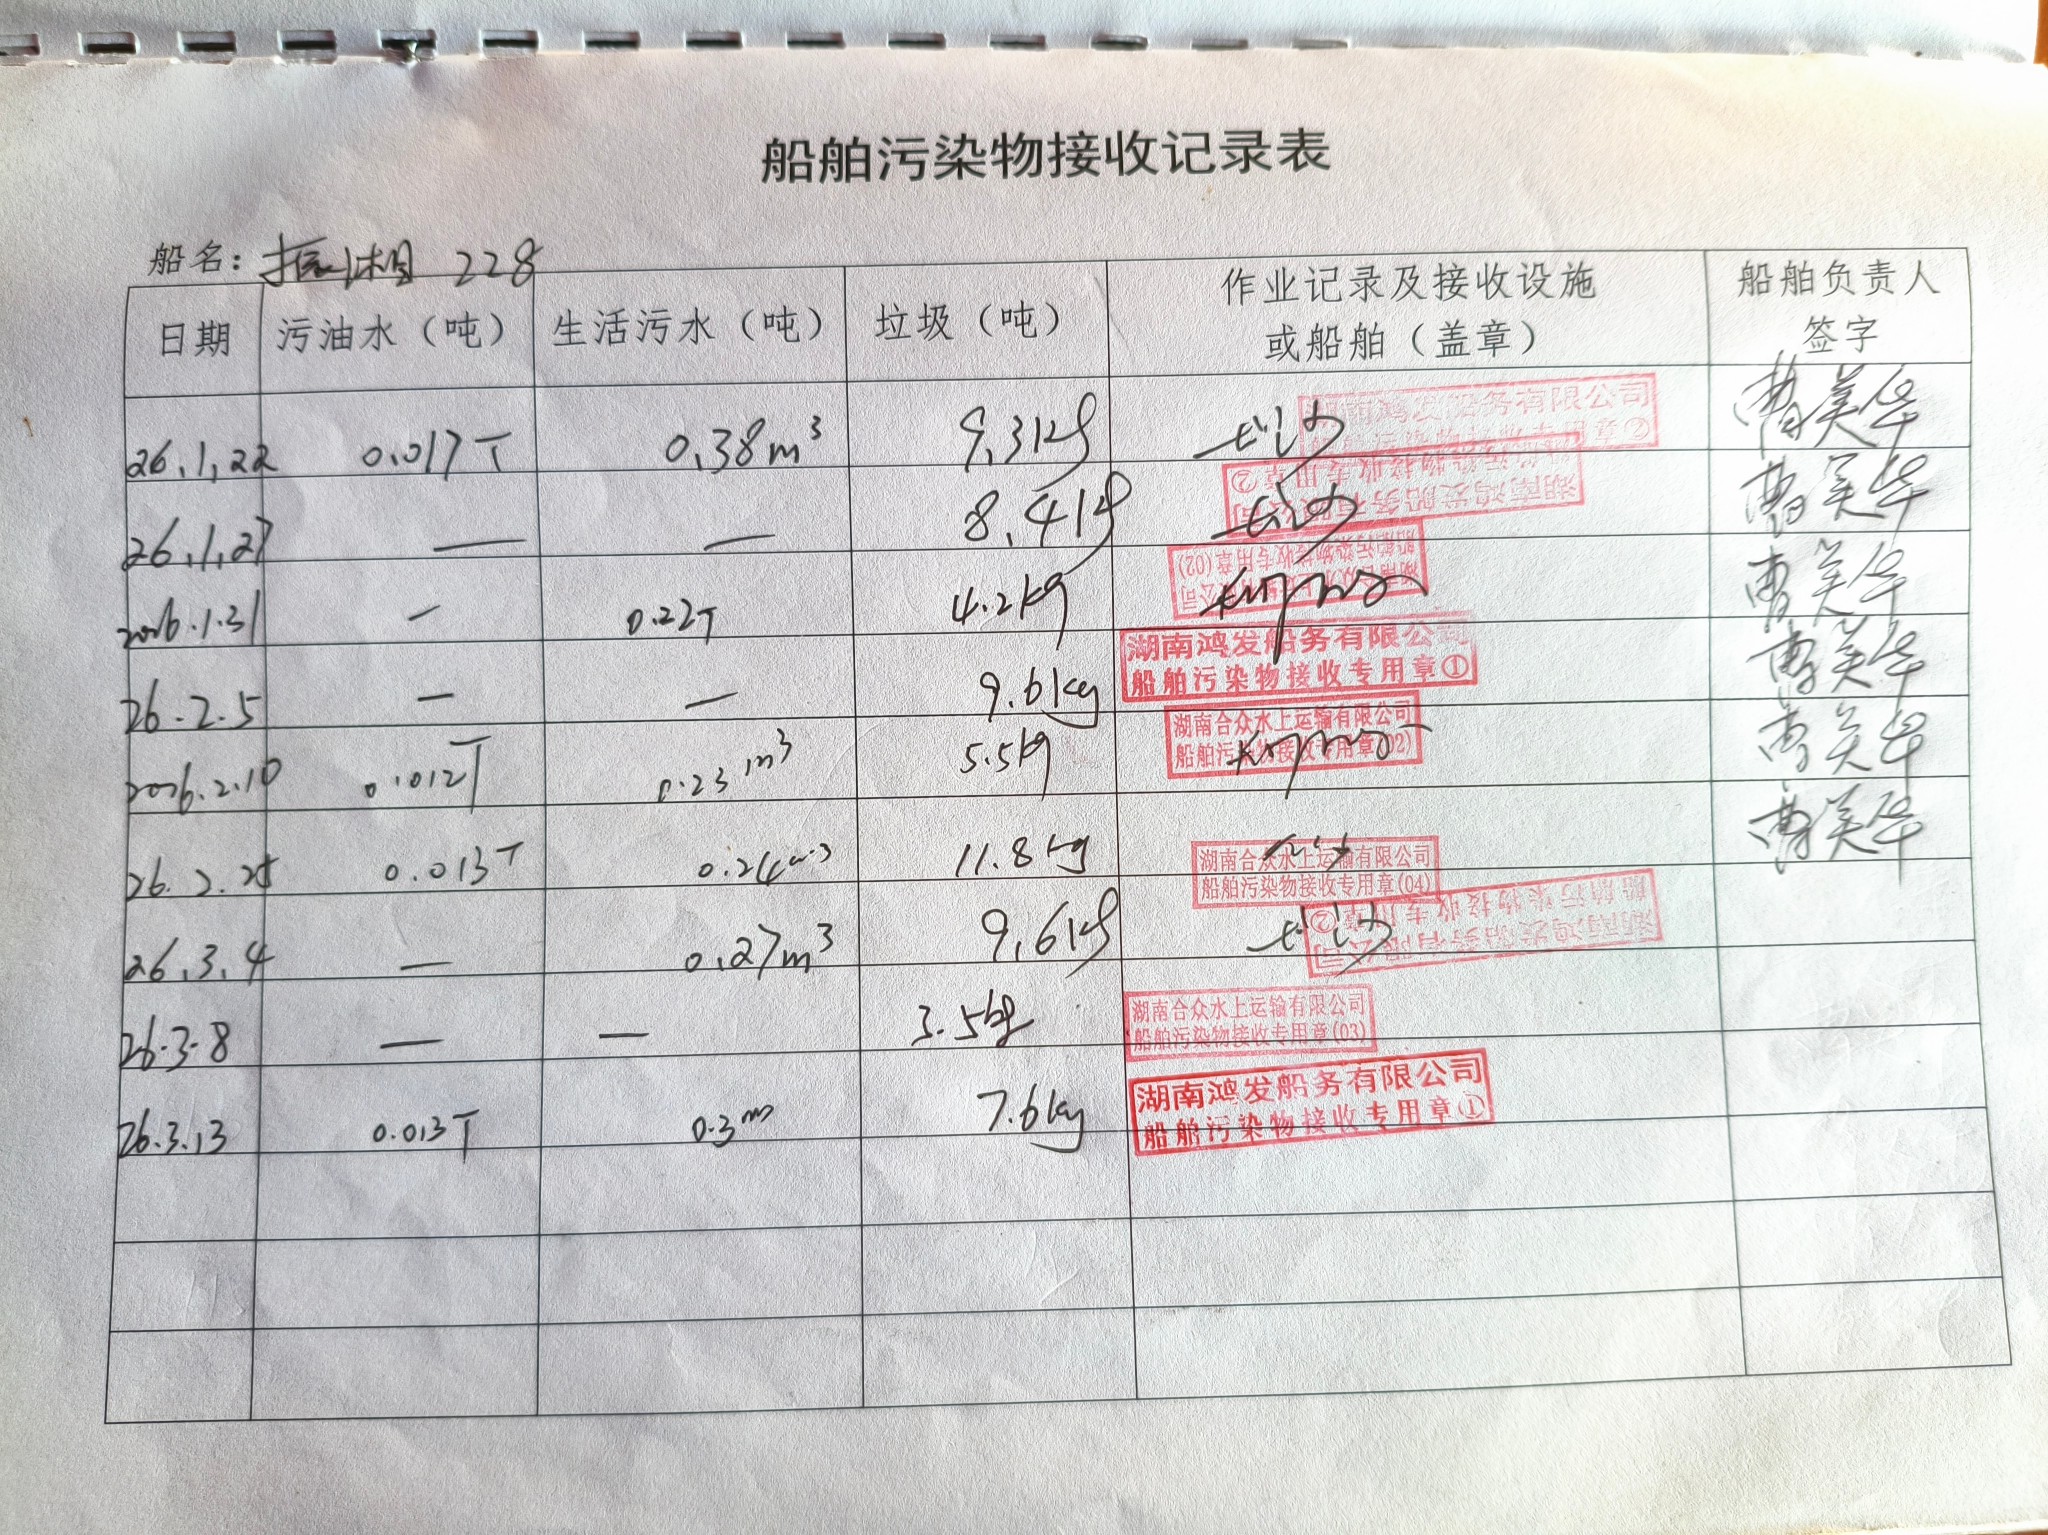 船舶污染物接收记录表
船名：振湘 228
日期 污油水（吨） 生活污水（吨） 垃圾（吨） 作业记录及接收设施或船舶（盖章） 船舶负责人签字
26.1.22 0.017T 0.38m³ 9.3kg 长沙 湖南鸿发船务有限公司 船舶污染物接收专用章② 曹美华
26.1.27 — — 8.4kg 长沙 湖南鸿发船务有限公司 船舶污染物接收专用章② 曹美华
2026.1.31 — 0.22T 4.2kg 湖南合众水上运输有限公司 船舶污染物接收专用章(02) 曹美华
26.2.5 — — 9.6kg 湖南鸿发船务有限公司 船舶污染物接收专用章① 曹美华
2026.2.10 0.012T 0.23m³ 5.5kg 湖南合众水上运输有限公司 船舶污染物接收专用章(02) 曹美华
26.2.25 0.013T 0.24m³ 11.8kg 长沙 湖南合众水上运输有限公司 船舶污染物接收专用章(04) 曹美华
26.3.4 — 0.27m³ 9.6kg 长沙 湖南鸿发船务有限公司 船舶污染物接收专用章②
26.3.8 — — 3.5kg 湖南合众水上运输有限公司 船舶污染物接收专用章(03)
26.3.13 0.013T 0.3m 7.6kg 湖南鸿发船务有限公司 船舶污染物接收专用章①